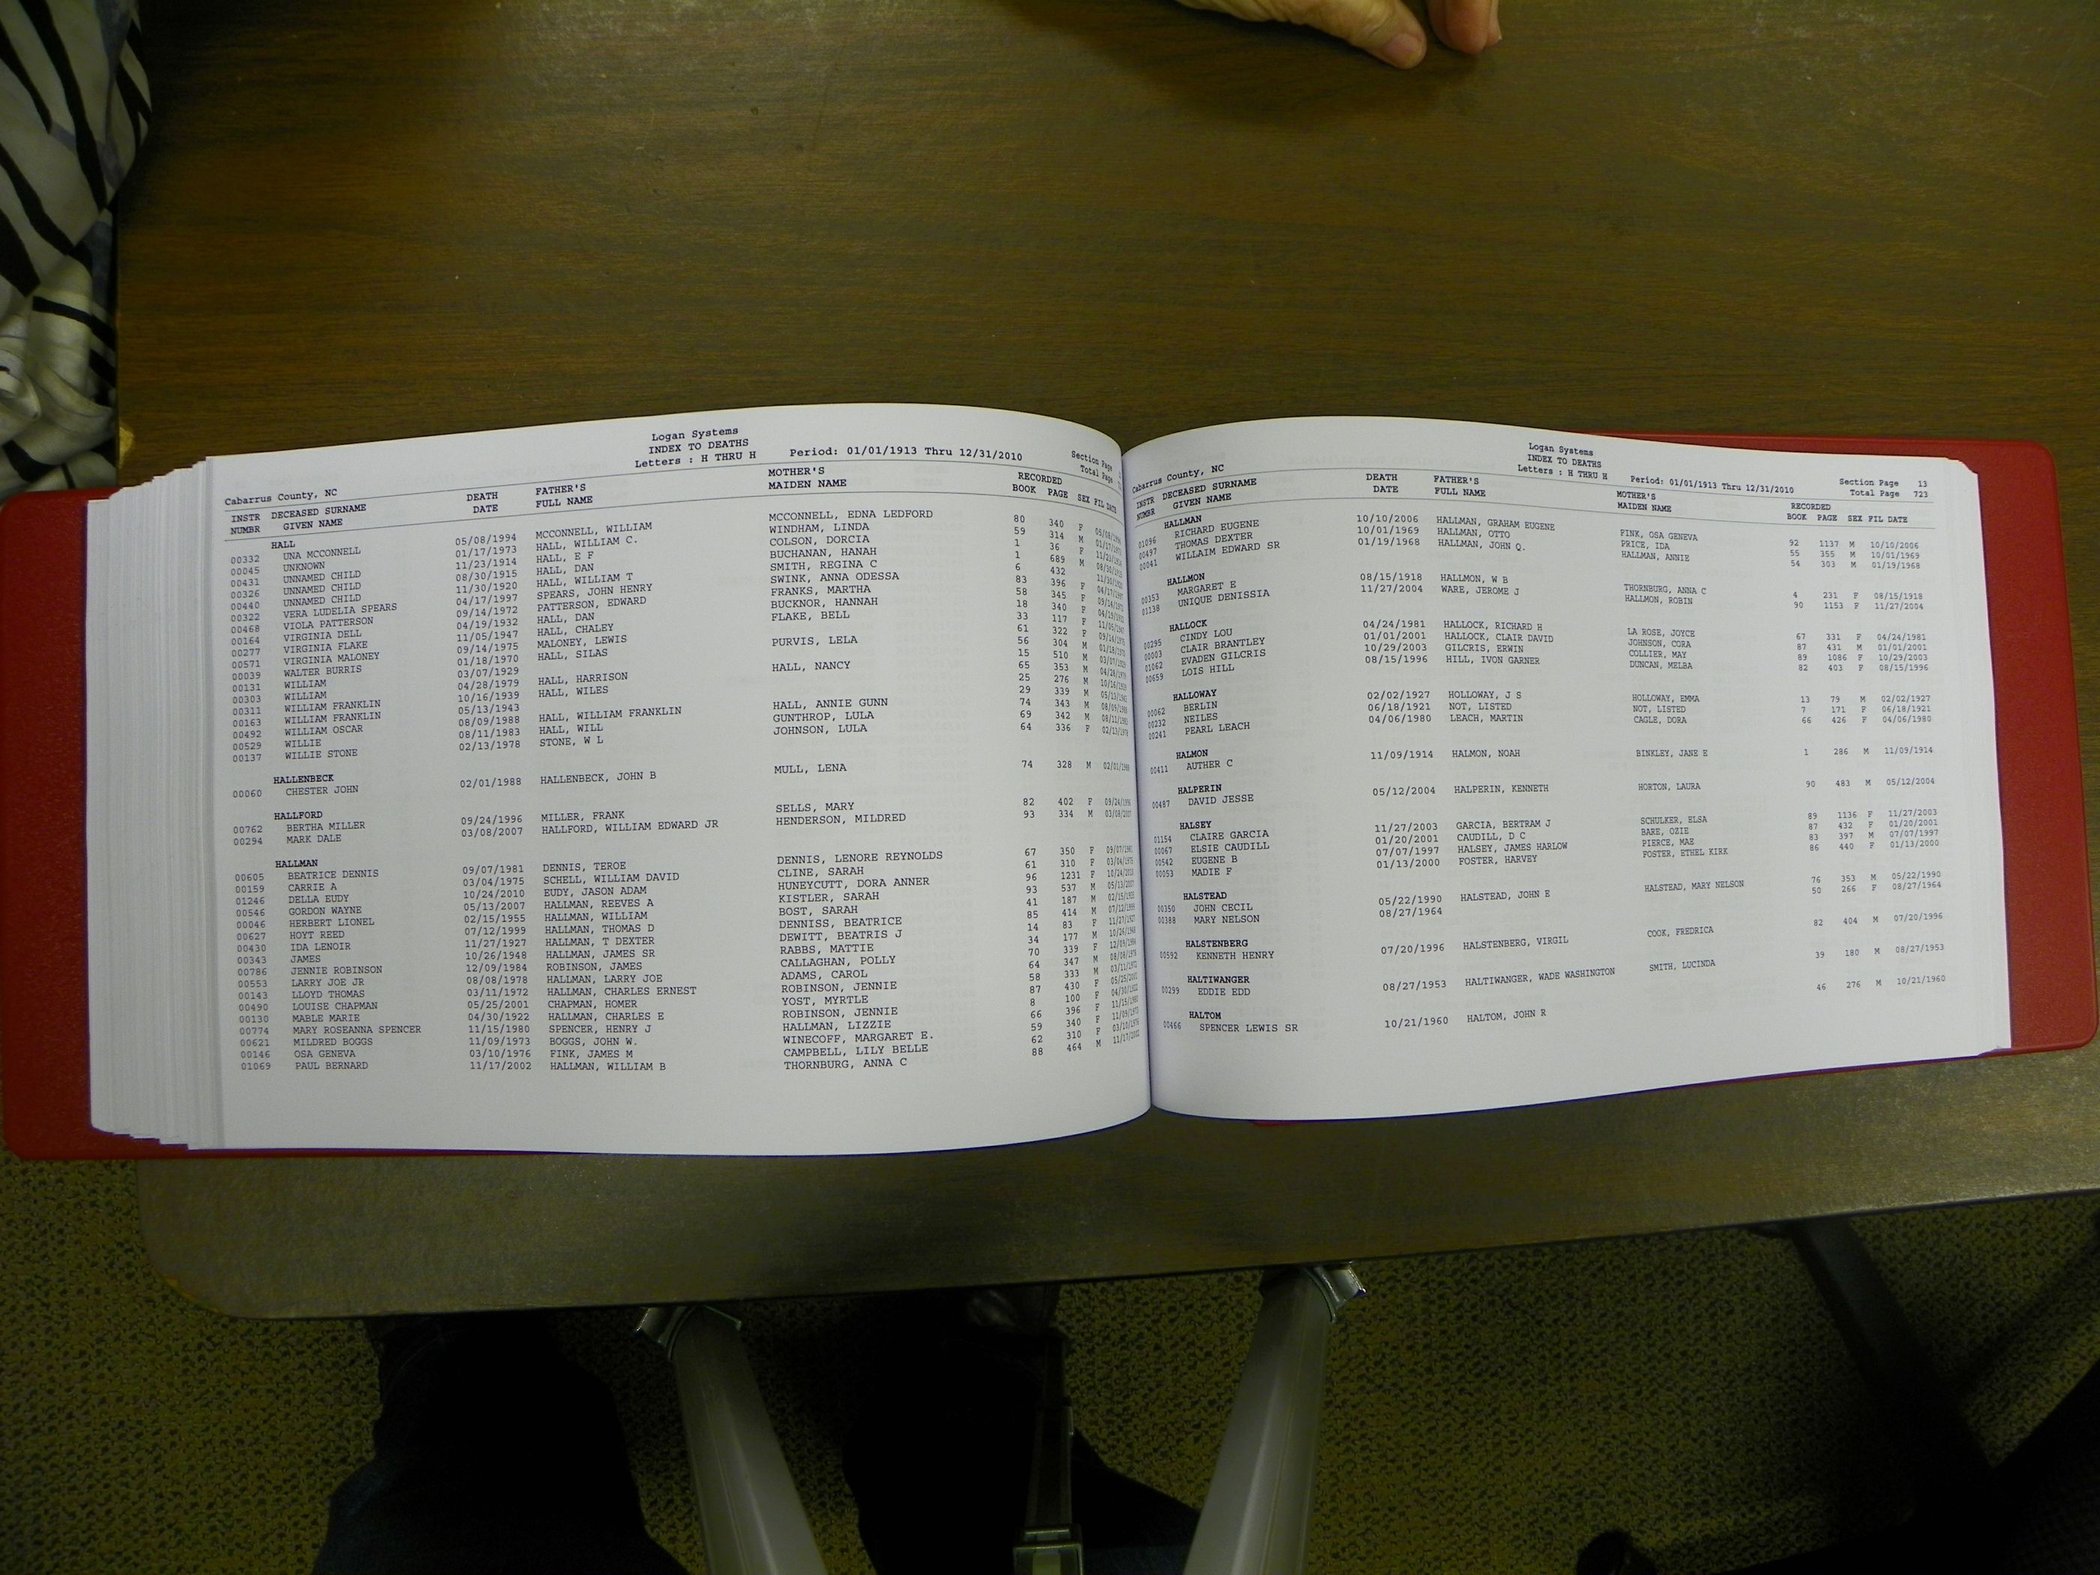 Logan Systems
INDEX TO DEATHS
Letters : H THRU H Period: 01/01/1913 Thru 12/31/2010 Section Page
Cabarrus County, NC Total Page
INSTR DECEASED SURNAME DEATH FATHER'S MOTHER'S RECORDED
NUMBR GIVEN NAME DATE FULL NAME MAIDEN NAME BOOK PAGE SEX FIL DATE
HALL
00332 UNA MCCONNELL 05/08/1994 MCCONNELL, WILLIAM MCCONNELL, EDNA LEDFORD 80 340 F 05/08/1994
00045 UNKNOWN 01/17/1973 HALL, WILLIAM C. WINDHAM, LINDA 59 314 M 01/17/1973
00431 UNNAMED CHILD 11/23/1914 HALL, E F COLSON, DORCIA 1 36 F 11/23/1914
00326 UNNAMED CHILD 08/30/1915 HALL, DAN BUCHANAN, HANAH 1 689 M 08/30/1915
00440 UNNAMED CHILD 11/30/1920 HALL, WILLIAM T SMITH, REGINA C 6 432 11/30/1920
00322 VERA LUDELIA SPEARS 04/17/1997 SPEARS, JOHN HENRY SWINK, ANNA ODESSA 83 396 F 04/17/1997
00468 VIOLA PATTERSON 09/14/1972 PATTERSON, EDWARD FRANKS, MARTHA 58 345 F 09/14/1972
00164 VIRGINIA DELL 04/19/1932 HALL, DAN BUCKNOR, HANNAH 18 340 F 04/19/1932
00277 VIRGINIA FLAKE 11/05/1947 HALL, CHALEY FLAKE, BELL 33 117 F 11/05/1947
00571 VIRGINIA MALONEY 09/14/1975 MALONEY, LEWIS 61 322 F 09/14/1975
00039 WALTER BURRIS 01/18/1970 HALL, SILAS PURVIS, LELA 56 304 M 01/18/1970
00131 WILLIAM 03/07/1929 15 510 M 03/07/1929
00303 WILLIAM 04/28/1979 HALL, HARRISON HALL, NANCY 65 353 M 04/28/1979
00311 WILLIAM FRANKLIN 10/16/1939 HALL, WILES 25 276 M 10/16/1939
00163 WILLIAM FRANKLIN 05/13/1943 29 339 M 05/13/1943
00492 WILLIAM OSCAR 08/09/1988 HALL, WILLIAM FRANKLIN HALL, ANNIE GUNN 74 343 M 08/09/1988
00529 WILLIE 08/11/1983 HALL, WILL GUNTHROP, LULA 69 342 M 08/11/1983
00137 WILLIE STONE 02/13/1978 STONE, W L JOHNSON, LULA 64 336 F 02/13/1978
HALLENBECK
00060 CHESTER JOHN 02/01/1988 HALLENBECK, JOHN B MULL, LENA 74 328 M 02/01/1988
HALLFORD
00762 BERTHA MILLER 09/24/1996 MILLER, FRANK SELLS, MARY 82 402 F 09/24/1996
00294 MARK DALE 03/08/2007 HALLFORD, WILLIAM EDWARD JR HENDERSON, MILDRED 93 334 M 03/08/2007
HALLMAN
00605 BEATRICE DENNIS 09/07/1981 DENNIS, TEROE DENNIS, LENORE REYNOLDS 67 350 F 09/07/1981
00159 CARRIE A 03/04/1975 SCHELL, WILLIAM DAVID CLINE, SARAH 61 310 F 03/04/1975
01246 DELLA EUDY 10/24/2010 EUDY, JASON ADAM HUNEYCUTT, DORA ANNER 96 1231 F 10/24/2010
00546 GORDON WAYNE 05/13/2007 HALLMAN, REEVES A KISTLER, SARAH 93 537 M 05/13/2007
00046 HERBERT LIONEL 02/15/1955 HALLMAN, WILLIAM BOST, SARAH 41 187 M 02/15/1955
00627 HOYT REED 07/12/1999 HALLMAN, THOMAS D DENNISS, BEATRICE 85 414 M 07/12/1999
00430 IDA LENOIR 11/27/1927 HALLMAN, T DEXTER DEWITT, BEATRIS J 14 83 F 11/27/1927
00343 JAMES 10/26/1948 HALLMAN, JAMES SR RABBS, MATTIE 34 177 M 10/26/1948
00786 JENNIE ROBINSON 12/09/1984 ROBINSON, JAMES CALLAGHAN, POLLY 70 339 F 12/09/1984
00553 LARRY JOE JR 08/08/1978 HALLMAN, LARRY JOE ADAMS, CAROL 64 347 M 08/08/1978
00143 LLOYD THOMAS 03/11/1972 HALLMAN, CHARLES ERNEST ROBINSON, JENNIE 58 333 M 03/11/1972
00490 LOUISE CHAPMAN 05/25/2001 CHAPMAN, HOMER YOST, MYRTLE 87 430 F 05/25/2001
00130 MABLE MARIE 04/30/1922 HALLMAN, CHARLES E ROBINSON, JENNIE 8 100 F 04/30/1922
00774 MARY ROSEANNA SPENCER 11/15/1980 SPENCER, HENRY J HALLMAN, LIZZIE 66 396 F 11/15/1980
00621 MILDRED BOGGS 11/09/1973 BOGGS, JOHN W. WINECOFF, MARGARET E. 59 340 F 11/09/1973
00146 OSA GENEVA 03/10/1976 FINK, JAMES M CAMPBELL, LILY BELLE 62 310 F 03/10/1976
01069 PAUL BERNARD 11/17/2002 HALLMAN, WILLIAM B THORNBURG, ANNA C 88 464 M 11/17/2002
Logan Systems
INDEX TO DEATHS
Letters : H THRU H Period: 01/01/1913 Thru 12/31/2010 Section Page 13
Cabarrus County, NC Total Page 723
INSTR DECEASED SURNAME DEATH FATHER'S MOTHER'S RECORDED
NUMBR GIVEN NAME DATE FULL NAME MAIDEN NAME BOOK PAGE SEX FIL DATE
HALLMAN
01096 RICHARD EUGENE 10/10/2006 HALLMAN, GRAHAM EUGENE FINK, OSA GENEVA 92 1137 M 10/10/2006
00497 THOMAS DEXTER 10/01/1969 HALLMAN, OTTO PRICE, IDA 55 355 M 10/01/1969
00041 WILLAIM EDWARD SR 01/19/1968 HALLMAN, JOHN Q. HALLMAN, ANNIE 54 303 M 01/19/1968
HALLMON
00353 MARGARET E 08/15/1918 HALLMON, W B THORNBURG, ANNA C 4 231 F 08/15/1918
01138 UNIQUE DENISSIA 11/27/2004 WARE, JEROME J HALLMON, ROBIN 90 1153 F 11/27/2004
HALLOCK
00295 CINDY LOU 04/24/1981 HALLOCK, RICHARD H LA ROSE, JOYCE 67 331 F 04/24/1981
00003 CLAIR BRANTLEY 01/01/2001 HALLOCK, CLAIR DAVID JOHNSON, CORA 87 431 M 01/01/2001
01062 EVADEN GILCRIS 10/29/2003 GILCRIS, ERWIN COLLIER, MAY 89 1086 F 10/29/2003
00659 LOIS HILL 08/15/1996 HILL, IVON GARNER DUNCAN, MELBA 82 403 F 08/15/1996
HALLOWAY
00062 BERLIN 02/02/1927 HOLLOWAY, J S HOLLOWAY, EMMA 13 79 M 02/02/1927
00232 NEILES 06/18/1921 NOT, LISTED NOT, LISTED 7 171 F 06/18/1921
00241 PEARL LEACH 04/06/1980 LEACH, MARTIN CAGLE, DORA 66 426 F 04/06/1980
HALMON
00411 AUTHER C 11/09/1914 HALMON, NOAH BINKLEY, JANE E 1 286 M 11/09/1914
HALPERIN
00487 DAVID JESSE 05/12/2004 HALPERIN, KENNETH HORTON, LAURA 90 483 M 05/12/2004
HALSEY
01154 CLAIRE GARCIA 11/27/2003 GARCIA, BERTRAM J SCHULKER, ELSA 89 1136 F 11/27/2003
00067 ELSIE CAUDILL 01/20/2001 CAUDILL, D C BARE, OZIE 87 432 F 01/20/2001
00542 EUGENE B 07/07/1997 HALSEY, JAMES HARLOW PIERCE, MAE 83 397 M 07/07/1997
00053 MADIE F 01/13/2000 FOSTER, HARVEY FOSTER, ETHEL KIRK 86 440 F 01/13/2000
HALSTEAD
00350 JOHN CECIL 05/22/1990 HALSTEAD, JOHN E HALSTEAD, MARY NELSON 76 353 M 05/22/1990
00388 MARY NELSON 08/27/1964 50 266 F 08/27/1964
HALSTENBERG
00592 KENNETH HENRY 07/20/1996 HALSTENBERG, VIRGIL COOK, FREDRICA 82 404 M 07/20/1996
HALTIWANGER
00299 EDDIE EDD 08/27/1953 HALTIWANGER, WADE WASHINGTON SMITH, LUCINDA 39 180 M 08/27/1953
HALTOM
00466 SPENCER LEWIS SR 10/21/1960 HALTOM, JOHN R 46 276 M 10/21/1960